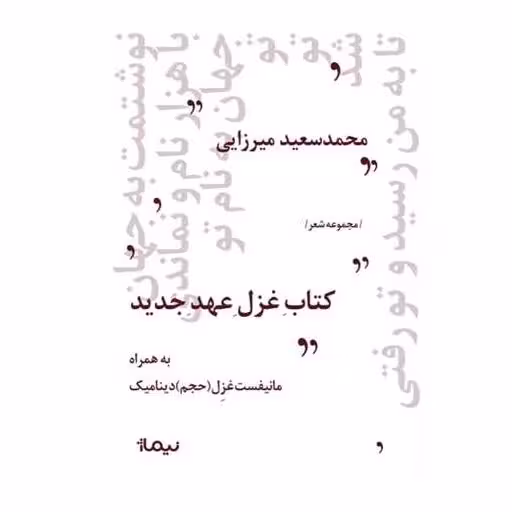 نوشتمت به جهان
با هزار نام و نماندی
جهان به نام تو
تو
تو
شد
تا به من رسید و تو رفتی
محمدسعید میرزایی
/مجموعه شعر/
کتابِ غزلِ عهدِ جدید
به همراه
مانیفست غزل(حجم)دینامیک
نیماژ